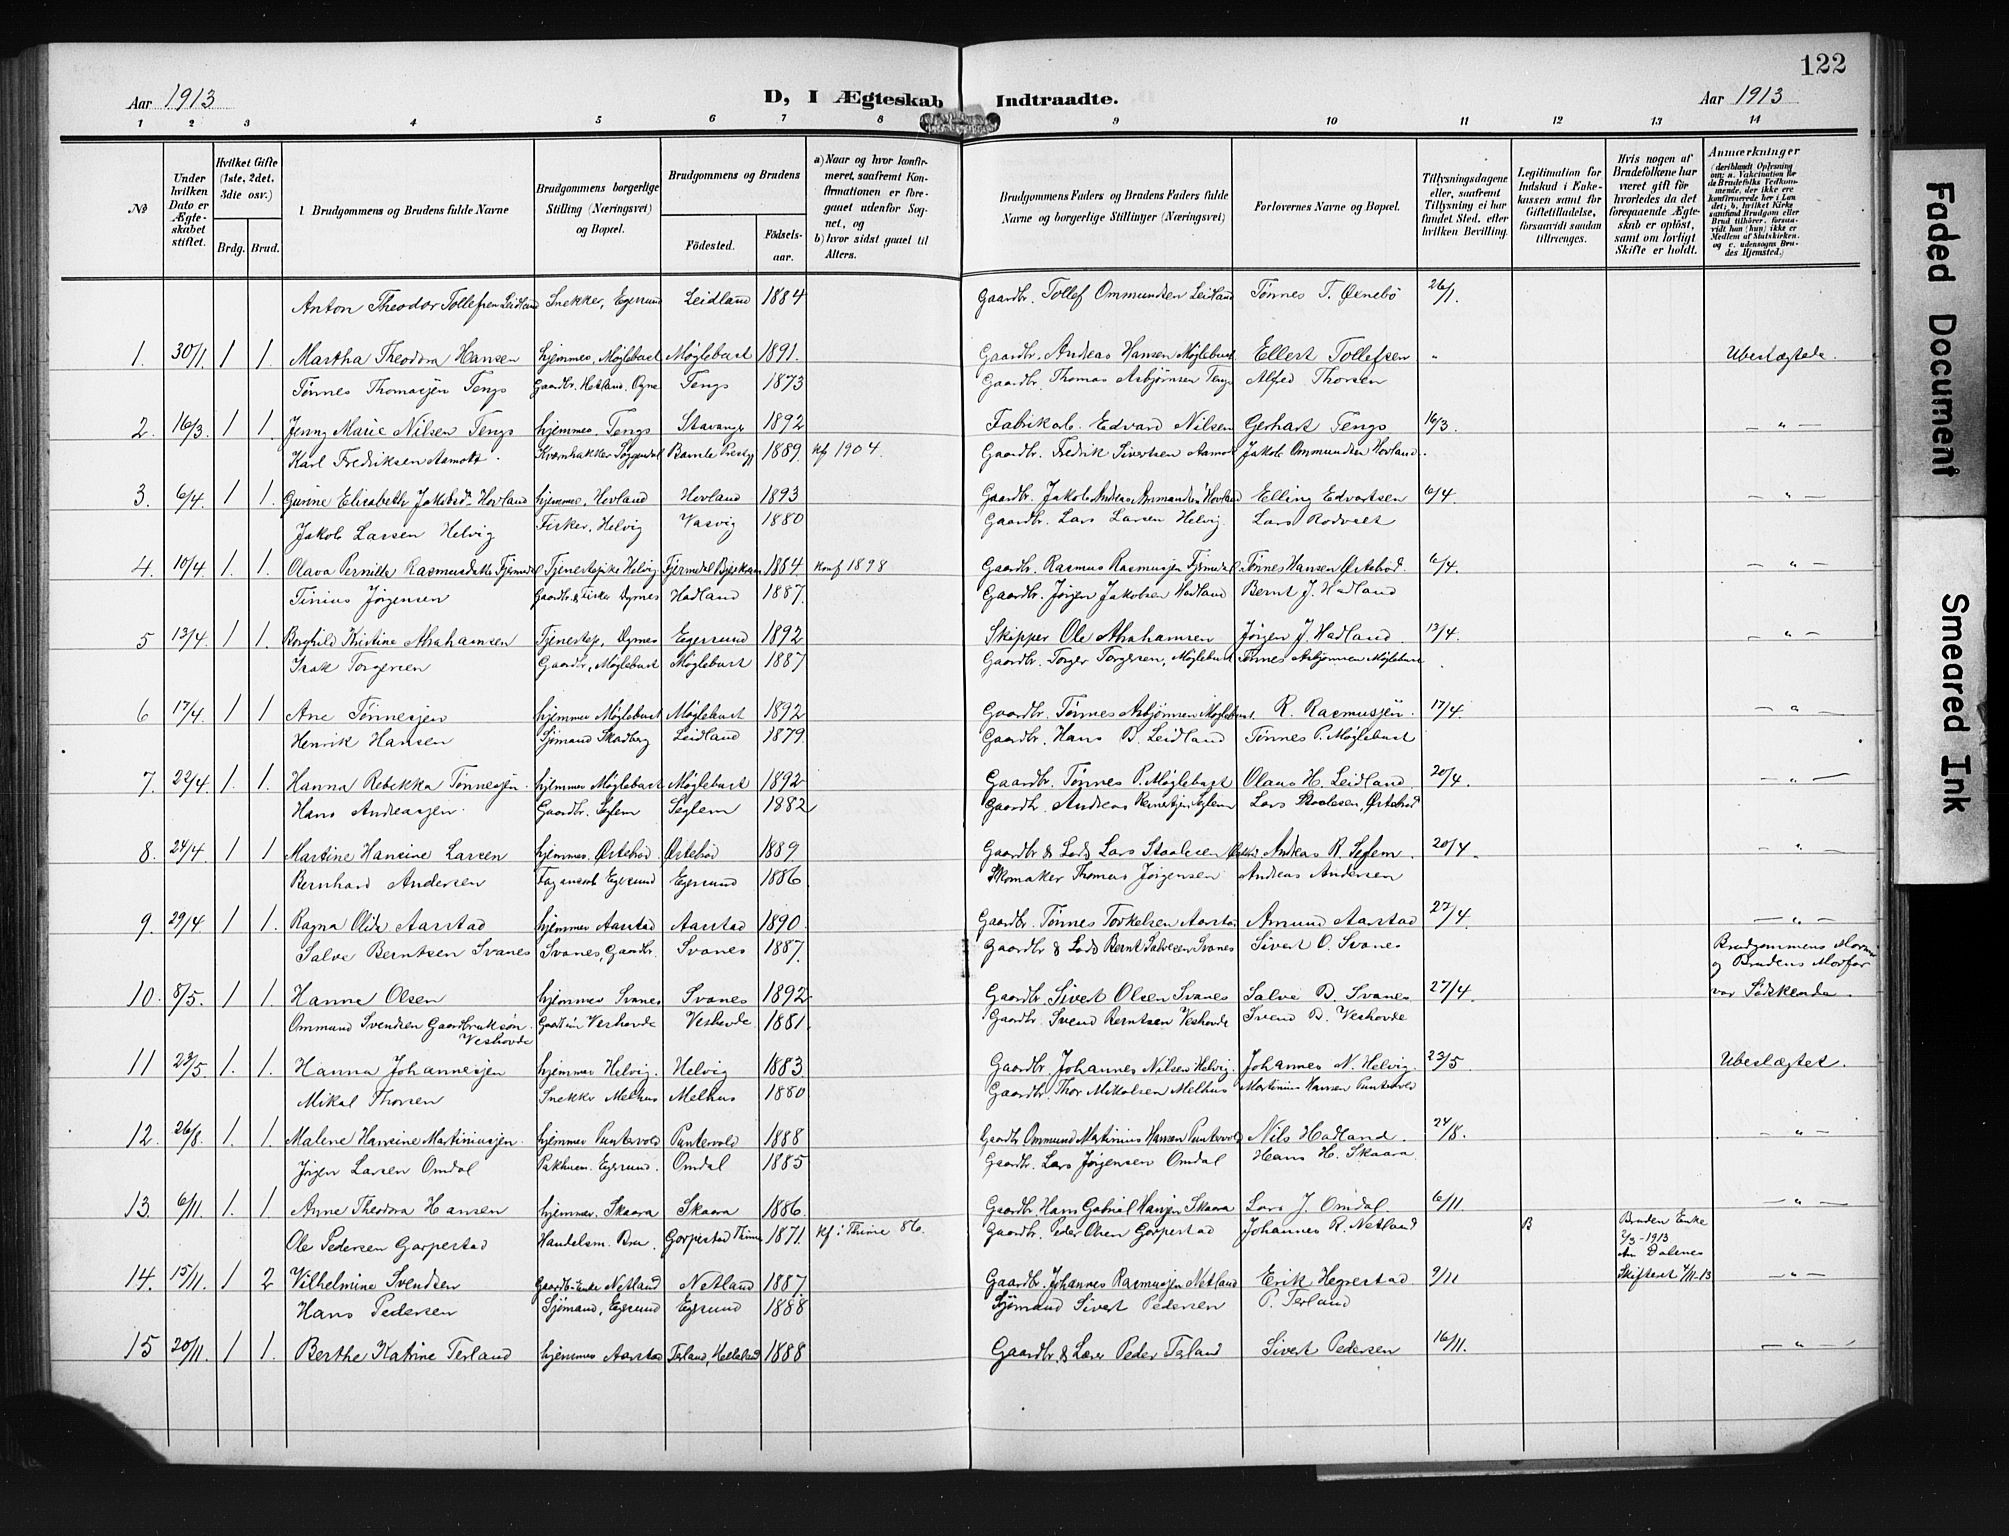 122
Aar 1913 D, I Ægteskab Indtraadte. Aar 1913
1 2 3 4 5 6 7 8 9 10 11 12 13 14
No
Under hvilken Dato er Ægteskabet stiftet.
Hvilket Gifte (1ste, 2det, 3die osv.)
Brdg. Brud.
Brudgommens og Brudens fulde Navne
Brudgommens borgerlige Stilling (Næringsvei) og Bopæl.
Brudgommens og Brudens
Fødested. Fødselsaar.
a) Naar og hvor konfirmeret, saafremt Konfirmationen er foregaaet udenfor Sognet, og
b) hvor sidst gaaet til Alters.
Brudgommens Faders og Brudens Faders fulde Navne og borgerlige Stillinger (Næringsvei)
Forlovernes Navne og Bopæl.
Tillysningsdagene eller, saafremt Tillysning ei har fundet Sted, efter hvilken Bevilling.
Legitimation for Indskud i Enkekassen samt for Giftetilladelse, forsaavidt saadan tiltrænges.
Hvis nogen af Brudefolkene har været gift før hvorledes da det foregaaende Ægteskab er opløst, samt om lovligt Skifte er holdt.
Anmærkninger
(deriblandt Oplysning om: a. Vakcination for de Brudefolks Vedkommende, der ikke ere konfirmerede her i Landet; b. hvilket Kirkesamfund Brudgom eller Brud tilhører, forsaavidt han (hun) ikke er Medlem af Statskirken, og c. udensogns Brudes Hjemsted.)
Anton Theodor Tollefsen Leidland Snekker, Egersund Leidland 1884 Gaardbr. Tollef Ommundsen Leidland Tønnes T. Øxnebø 26/1.
1. 30/1 1 1. Martha Theodora Hansen hjemmes, Møglebust Møglebust 1891. Gaardbr. Andreas Hansen Møglebust Ellert Tollefsen " Ubeslægtede.
Tønnes Thomasjen Tengs Gaardbr. Hetland. Ogne Tengs 1873 Gaardbr. Thomas Asbjørnsen Tengs Alfred Thorsen
2. 16/3. 1 1. Jenny Marie Nilsen Tengs hjemmes. Tengs Stavanger 1892 Fabrikarb. Edvard Nilsen Gerhart Tengs 16/3. — " —
Karl Fredriksen Aamodt. Kværnhakker Soggendal Bamle Prestgj 1889. Kf 1904. Gaardbr. Fredrik Sivertsen Aamot Jakob Ommundsen Hovland.
3. 6/4. 1 1. Gurine Elisabeth Jakobsdtr Hovland hjemmes, Hovland Hovland 1893 Gaardbr. Jakob Andreas Ammundsen Hovland Elling Edvartsen 6/4 — " —
Jakob Larsen Helvig Fisker, Helvig Vasvig 1880 Gaardbr. Lars Larsen Helvig Lars Rodvelt
4. 10/4. 1. 1. Olava Pernille Rasmusdatter Fjermedal Tjenestepike Helvig Fjermedal Bjerkreim 1884. Konf 1898 Gaardbr. Rasmus Rasmusjen Fjermedal Tønnes Hansen Østebrød. 6/4. — " —
Tinius Jørgensen Gaardbr. & Fisker Dyrnes Hadland 1887. Gaardbr. Jørgen Jakobsen Hadland Bernt J. Hadland
5 13/4. 1 1. Borghild Kristine Abrahamsen Tjenestep, Dyrnes Egersund 1892 Skipper Ole Abrahamsen Jørgen J. Hadland. 13/4. — " —
Isak Torgersen Gaardbr, Møglebust Møglebust 1887 Gaardbr. Torger Torgersen, Møglebust Tønnes Asbjørnsen Møglebust
6 17/4. 1 1 Ane Tønnesjen hjemmer Møglebust Møglebust 1892 Gaardbr. Tønnes Asbjørnsen Møglebust. R. Rasmusjen. 17/4. — " —
Henrik Hansen Sjømand Skadberg Leidland 1879. Gaardbr. Hans B. Leidland Tønnes P. Møglebust
7. 22/4 1. 1. Hanna Rebekka Tønnesjen. hjemmer Møglebust Møglebust 1892 Gaardbr. Tønnes P. Møglebust Olaus H. Leidland 20/4. — " —
Hans Andreasjen. Gaardbr. Seglem Seglem 1882 Gaardbr. Andreas Reinertsjen Seglem Lars Staalesen, Østebrød
8. 24/4. 1 1 Martine Hansine Larsen hjemmes. Østebrød Østebrød 1889 Gaardbr & Lods Lars Staalesen Østebr. Andreas R. Seglem. 20/4. — " —
Bernhard Andersen Fayancearb Egersund Egersund 1886. Skomaker Thomas Jørgensen Andreas Andersen
9. 29/4 1 1. Ragna Olida Aarstad hjemmer Aarstad Aarstad 1890. Gaardbr. Tønnes Torkelsen Aarstad. Amund Aarstad 27/4. — " —
Salve Berntsen Svanes Svanes, Gaardbr. Svanes 1887. Gaardbr & Lods Bernt Salvesen Svanes Sivert O. Svanes Brudgommens Mormor og Brudens Morfar
10. 8/5. 1 1. Hanne Olsen hjemmer Svanes Svanes 1892 Gaardbr. Sivert Olsen Svanes Salve B. Svanes. 27/4. var Sødskende.
Ommund Svendsen Gaardbruksøn. Veshovde Gaardbr.søn Veshovde Veshovde 1881. Gaardbr. Svend Berntsen Veshovde Svend B. Veshovde
11 23/5. 1. 1. Hanna Johannesjen hjemmer Helvig. Helvig 1883 Gaardbr. Johannes Nilsen Helvig. Johannes N. Helvig. 23/5. Ubeslægtet.
Mikal Thorsen Snekke Melhus Melhus 1880 Gaardbr. Thor Mikalsen Melhus Martinius Hansen Puntervold
12. 26/8. 1. 1. Malene Hansine Martiniusjen. hjemmer Puntervold Puntervold 1888 Gaardbr Ommund Martinius Hansen Puntervold Nils Hadland. 24/8. — " —
Jørgen Larsen Omdal Pakhusm. Egersund. Omdal 1885 Gaardbr. Lars Jørgensen Omdal Hans H. Skaara.
13. 6/11. 1. 1. Anne Theodora Hansen hjemmer. Skaara Skaara 1886. Gaardbr. Hans Gabriel Hansjen Skaara Lars J. Omdal. 6/11 — " —
Ole Pedersen Garpestad Handelsm. Brue. Garpestad Thime 1871. Kf i Thime 86. Gaardbr. Peder Olsen Garpestad Johannes R. Netland B Bruden Enke 2/3-1913 Dalenes
14. 15/11. 1 2 Vilhelmine Svendsen Gaardbr-Enke Netland Netland 1887. Gaardbr. Johannes Rasmusjen Netland Erik Hegrestad 9/11 Skifteret 7/11-13 — " —
Hans Pedersen Sjømand, Egersund Egersund 1888 Sjømand Sivert Pedersen P. Terland
15 20/11. 1 1. Berthe Katrine Terland hjemmes Aarstad Terland, Helleland 1888 Gaardbr. & Lærer Peder Terland Sivert Pedersen 16/11. — " —
Faded Document
Smeared Ink